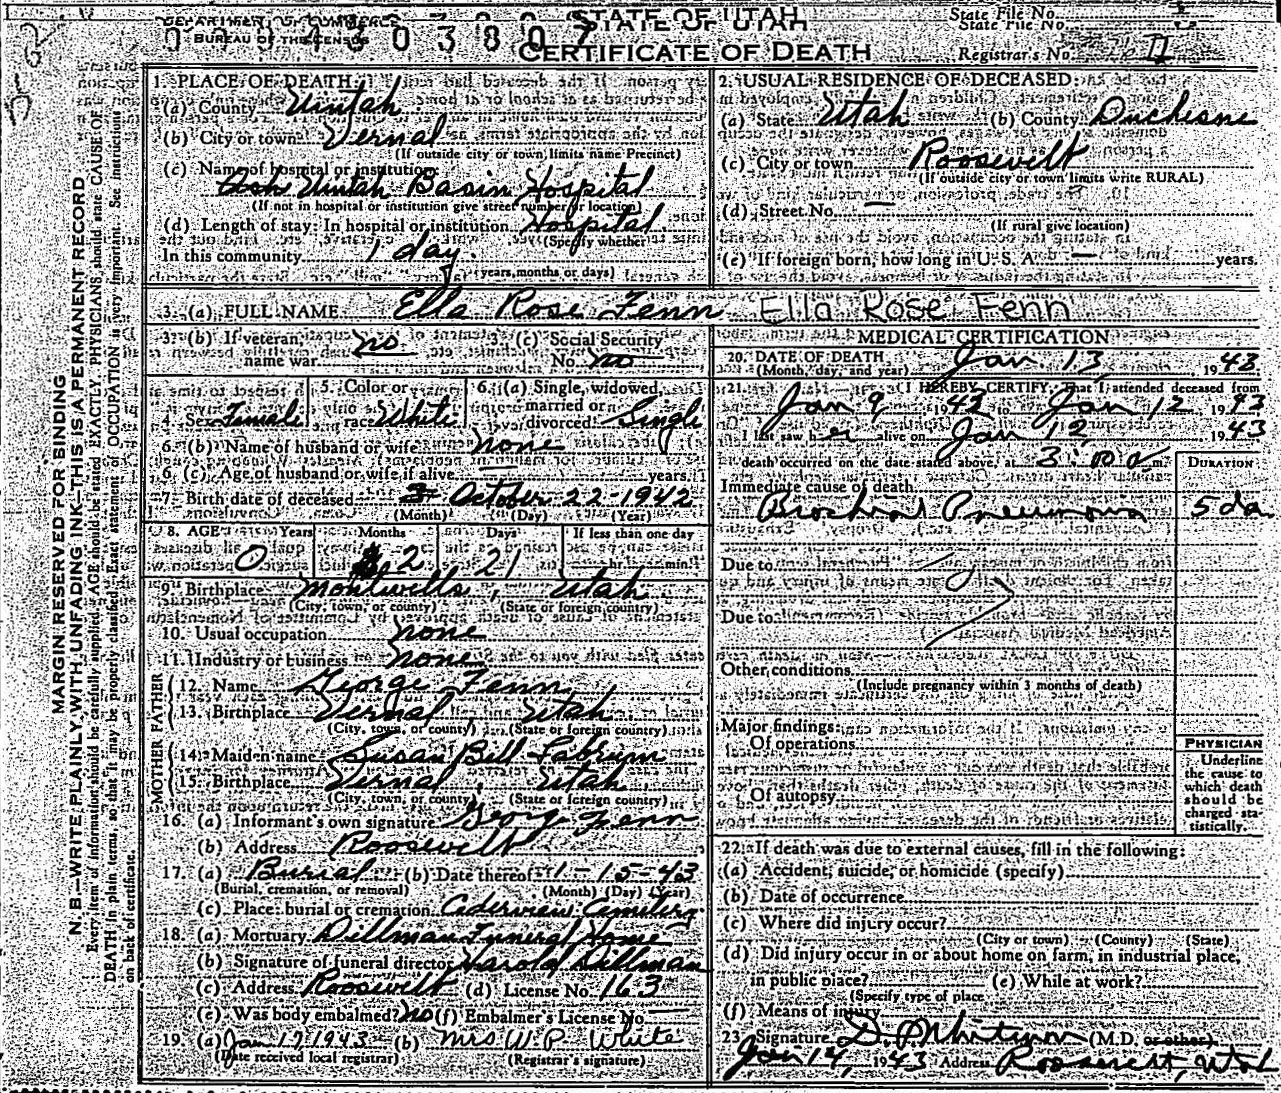 DEPARTMENT OF COMMERCE
BUREAU OF THE CENSUS
STATE OF UTAH
CERTIFICATE OF DEATH
State File No.
State File No.
Registrar's No. II
MARGIN RESERVED FOR BINDING
N. B.—WRITE PLAINLY, WITH UNFADING INK—THIS IS A PERMANENT RECORD
Every item of information should be carefully supplied. AGE should be stated EXACTLY. PHYSICIANS should state CAUSE OF
DEATH in plain terms, so that it may be properly classified. Exact statement of OCCUPATION is very important. See instructions
on back of certificate.
1. PLACE OF DEATH:
(a) County Uintah
(b) City or town Vernal
(If outside city or town limits name Precinct)
(c) Name of hospital or institution:
Uintah Basin Hospital
(If not in hospital or institution give street number or location)
(d) Length of stay: In hospital or institution Hospital
(Specify whether
In this community 1 day
years, months or days)
2. USUAL RESIDENCE OF DECEASED
(a) State Utah (b) County Duchesne
(c) City or town Roosevelt
(If outside city or town limits write RURAL)
(d) Street No. —
(If rural give location)
(e) If foreign born, how long in U. S. A. — years.
3. (a) FULL NAME Ella Rose Fenn Ella Rose Fenn
3. (b) If veteran, name war no 3. (c) Social Security No. no
4. Sex Female 5. Color or race White 6. (a) Single, widowed, married or divorced Single
6. (b) Name of husband or wife none
6. (c) Age of husband or wife if alive — years.
7. Birth date of deceased October 22-1942
(Month) (Day) (Year)
8. AGE Years Months Days If less than one day
0 2 21 hr. min.
9. Birthplace Montwells, Utah
(City, town, or county) (State or foreign country)
10. Usual occupation none
11. Industry or business none
FATHER
12. Name George Fenn
13. Birthplace Vernal Utah
(City, town, or county) (State or foreign country)
MOTHER
14. Maiden name Susan Bell Labrum
15. Birthplace Vernal, Utah
(City, town, or county) (State or foreign country)
16. (a) Informant's own signature George Fenn
(b) Address Roosevelt
17. (a) Burial (b) Date thereof 1-15-43
(Burial, cremation, or removal) (Month) (Day) (Year)
(c) Place: burial or cremation Cedarview Cemetery
18. (a) Mortuary Dillman Funeral Home
(b) Signature of funeral director Harold Dillman
(c) Address Roosevelt (d) License No. 163
(e) Was body embalmed? No (f) Embalmer's License No. —
19. (a) Jan 17, 1943 (b) Mrs W. P. White
(Date received local registrar) (Registrar's signature)
MEDICAL CERTIFICATION
20. DATE OF DEATH Jan. 13, 1943
(Month, day, and year)
21. I HEREBY CERTIFY, That I attended deceased from
Jan 9 1943 to Jan 12 1943
I last saw her alive on Jan 12, 1943
death occurred on the date stated above, at 3:00 a m.
DURATION
Immediate cause of death
Bronchial Pneumonia 5 da
Due to
Due to
Other conditions
(Include pregnancy within 3 months of death)
Major findings:
Of operations
Of autopsy
PHYSICIAN
Underline
the cause to
which death
should be
charged sta-
tistically.
22. If death was due to external causes, fill in the following:
(a) Accident, suicide, or homicide (specify)
(b) Date of occurrence
(c) Where did injury occur?
(City or town) (County) (State)
(d) Did injury occur in or about home on farm, in industrial place,
in public place? (e) While at work?
(Specify type of place
(f) Means of injury
23. Signature (M.D. or other)
Jan 14, 1943 Address Roosevelt, Utah